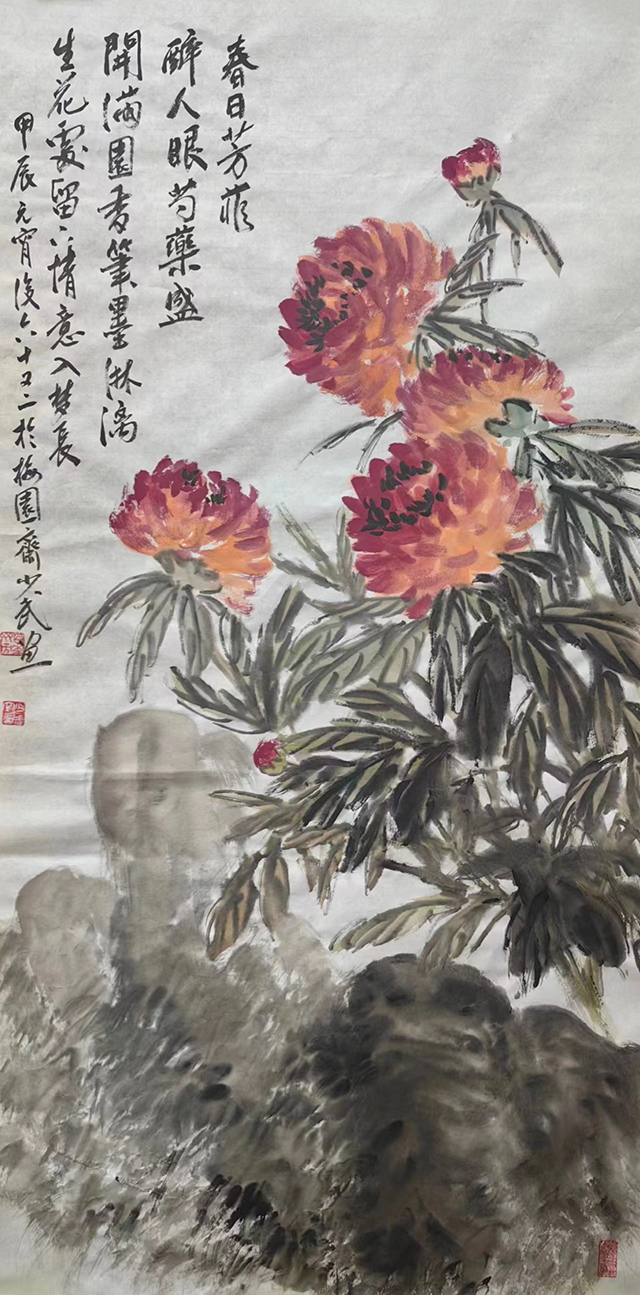 春日芳菲
醉人眼芍藥盛
開滿園香筆墨淋漓
生花處留下情意入夢長
甲辰元宵後六十又二於梅園齋少武畫